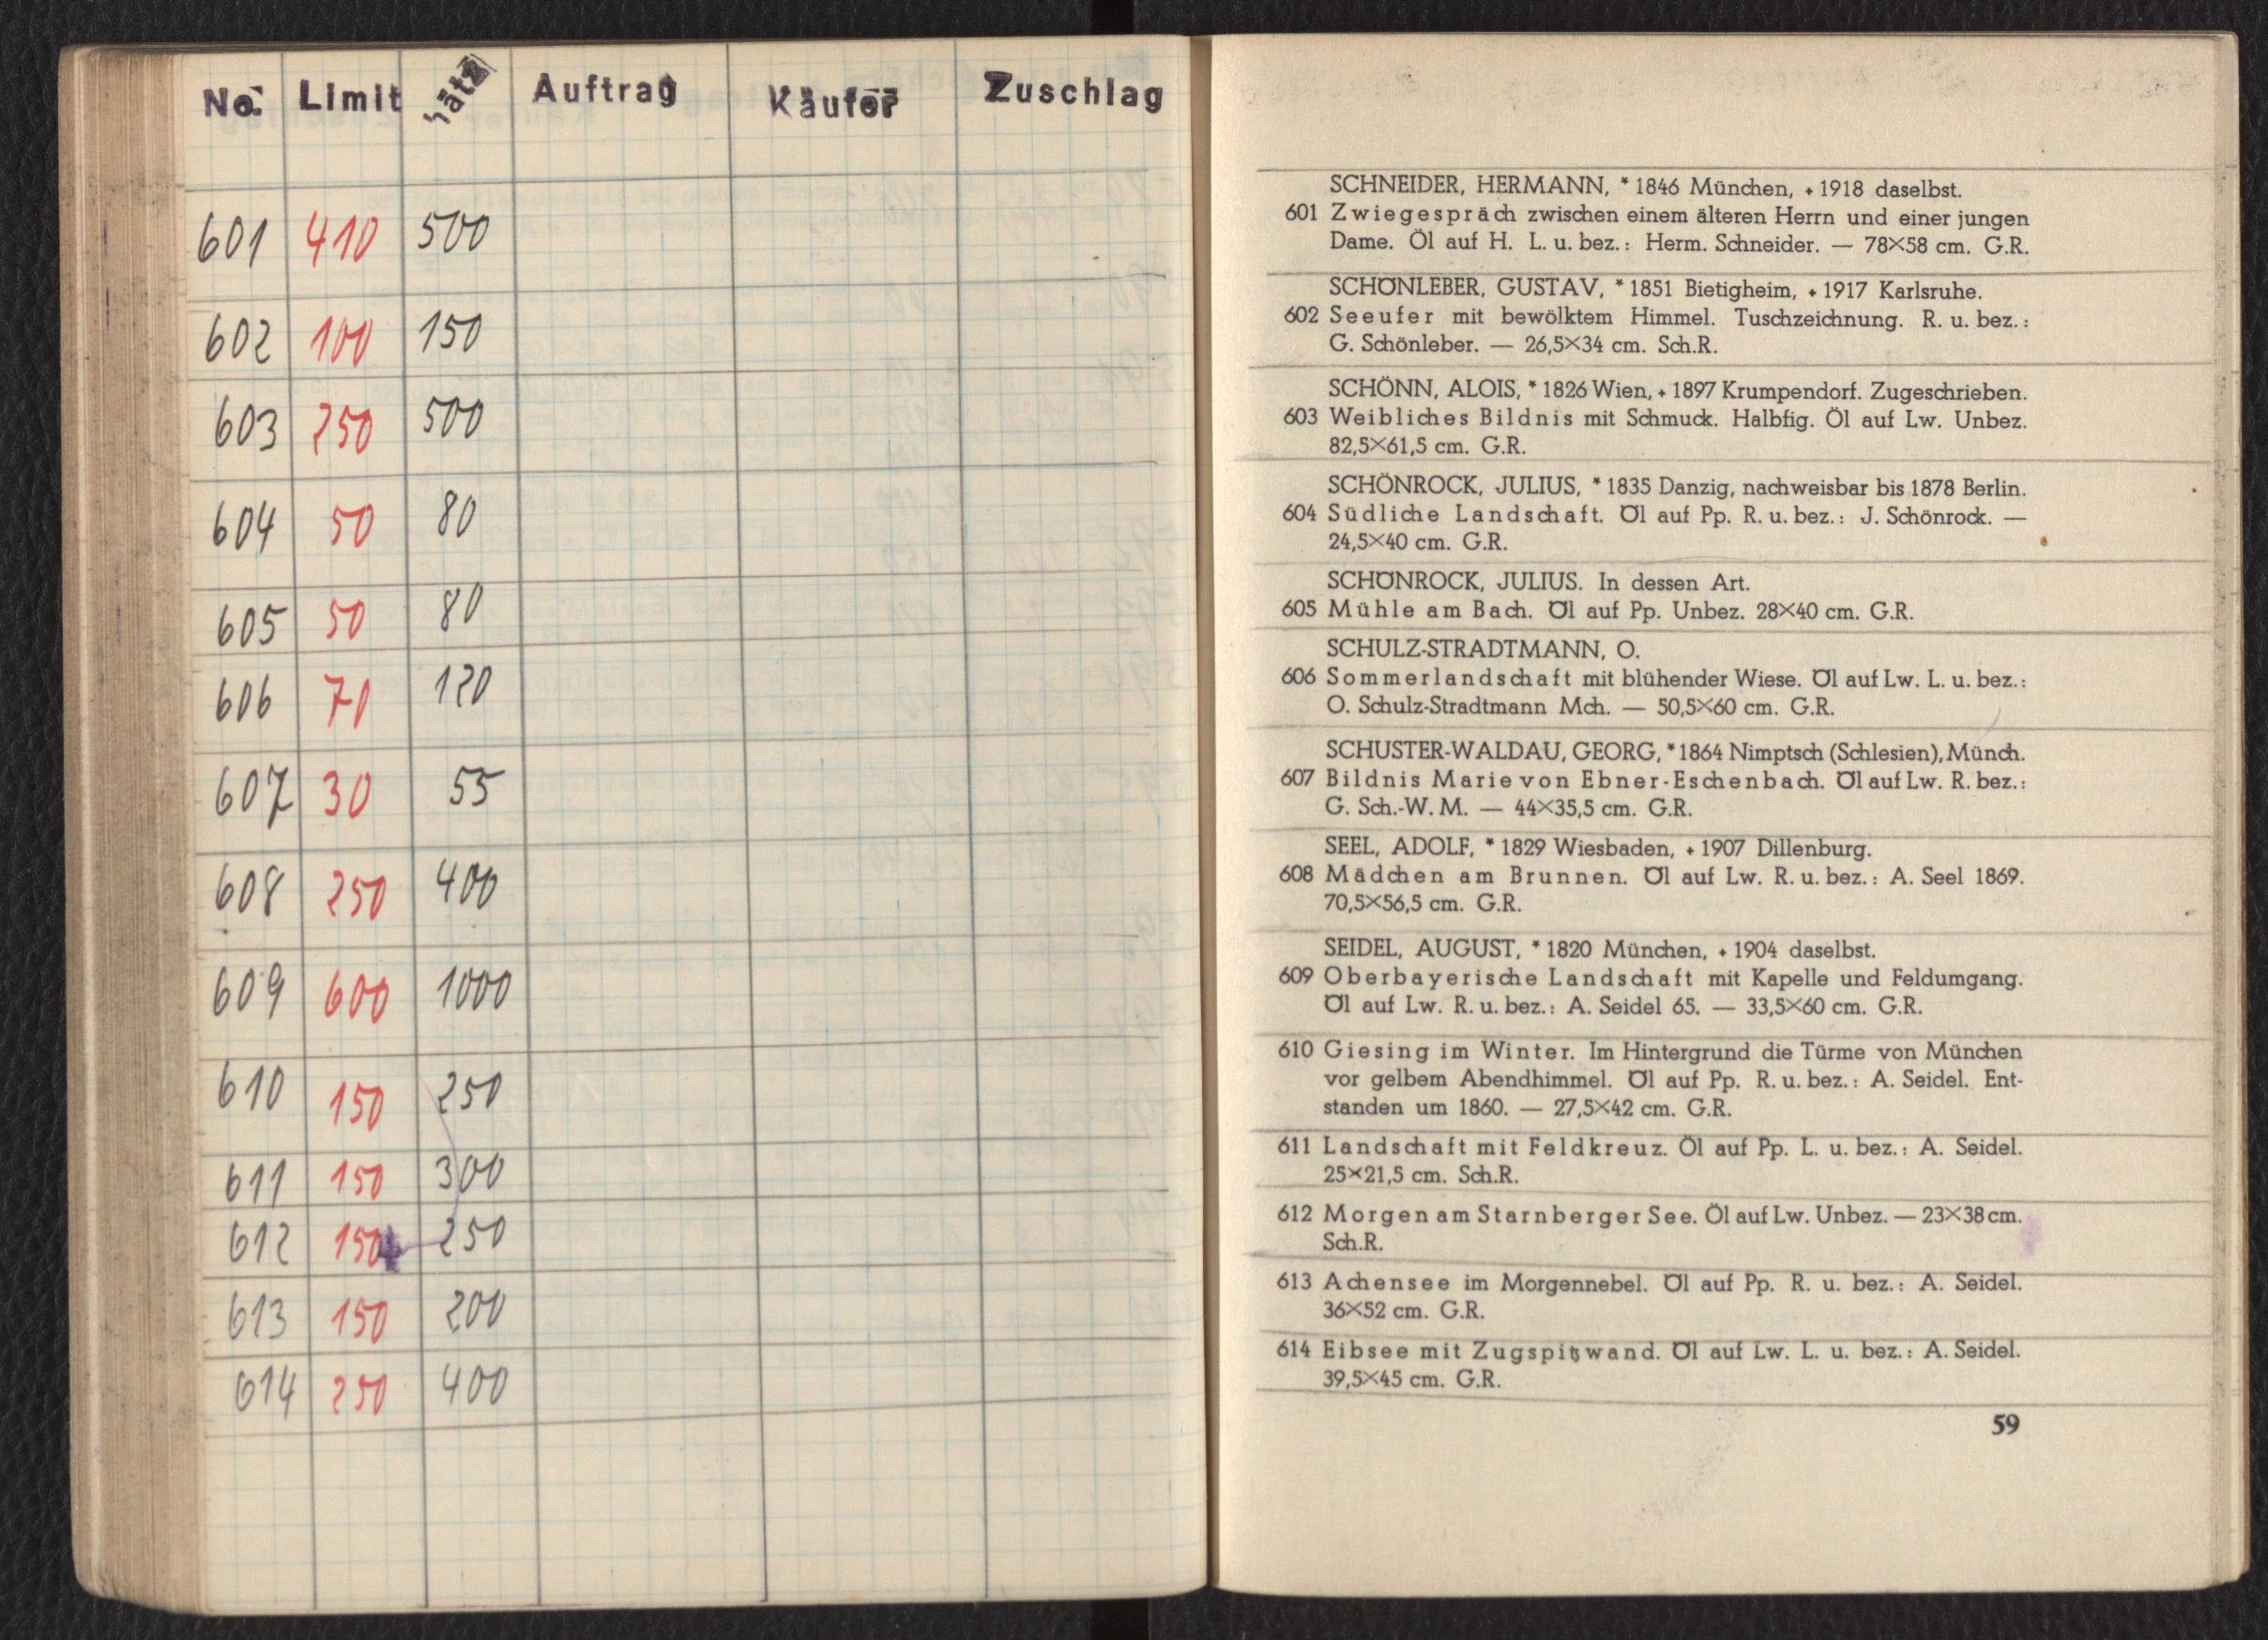 No. Limit Auftrag Käufer Zuschlag
601 410 500
602 100 150
603 250 500
604 50 80
605 50 80
606 70 120
607 30 55
608 250 400
609 600 1000
610 150 250
611 150 300
612 150 250
613 150 200
614 250 400
SCHNEIDER, HERMANN, * 1846 München, + 1918 daselbst.
601 Zwiegespräch zwischen einem älteren Herrn und einer jungen
Dame. Öl auf H. L. u. bez.: Herm. Schneider. — 78×58 cm. G.R.
SCHÖNLEBER, GUSTAV, * 1851 Bietigheim, + 1917 Karlsruhe.
602 Seeufer mit bewölktem Himmel. Tuschzeichnung. R. u. bez.:
G. Schönleber. — 26,5×34 cm. Sch.R.
SCHÖNN, ALOIS, * 1826 Wien, + 1897 Krumpendorf. Zugeschrieben.
603 Weibliches Bildnis mit Schmuck. Halbfig. Öl auf Lw. Unbez.
82,5×61,5 cm. G.R.
SCHÖNROCK, JULIUS, * 1835 Danzig, nachweisbar bis 1878 Berlin.
604 Südliche Landschaft. Öl auf Pp. R. u. bez.: J. Schönrock. —
24,5×40 cm. G.R.
SCHÖNROCK, JULIUS. In dessen Art.
605 Mühle am Bach. Öl auf Pp. Unbez. 28×40 cm. G.R.
SCHULZ-STRADTMANN, O.
606 Sommerlandschaft mit blühender Wiese. Öl auf Lw. L. u. bez.:
O. Schulz-Stradtmann Mch. — 50,5×60 cm. G.R.
SCHUSTER-WALDAU, GEORG, * 1864 Nimptsch (Schlesien), Münch.
607 Bildnis Marie von Ebner-Eschenbach. Öl auf Lw. R. bez.:
G. Sch.-W. M. — 44×35,5 cm. G.R.
SEEL, ADOLF, * 1829 Wiesbaden, + 1907 Dillenburg.
608 Mädchen am Brunnen. Öl auf Lw. R. u. bez.: A. Seel 1869.
70,5×56,5 cm. G.R.
SEIDEL, AUGUST, * 1820 München, + 1904 daselbst.
609 Oberbayerische Landschaft mit Kapelle und Feldumgang.
Öl auf Lw. R. u. bez.: A. Seidel 65. — 33,5×60 cm. G.R.
610 Giesing im Winter. Im Hintergrund die Türme von München
vor gelbem Abendhimmel. Öl auf Pp. R. u. bez.: A. Seidel. Ent-
standen um 1860. — 27,5×42 cm. G.R.
611 Landschaft mit Feldkreuz. Öl auf Pp. L. u. bez.: A. Seidel.
25×21,5 cm. Sch.R.
612 Morgen am Starnberger See. Öl auf Lw. Unbez. — 23×38 cm.
Sch.R.
613 Achensee im Morgennebel. Öl auf Pp. R. u. bez.: A. Seidel.
36×52 cm. G.R.
614 Eibsee mit Zugspitzwand. Öl auf Lw. L. u. bez.: A. Seidel.
39,5×45 cm. G.R.
59